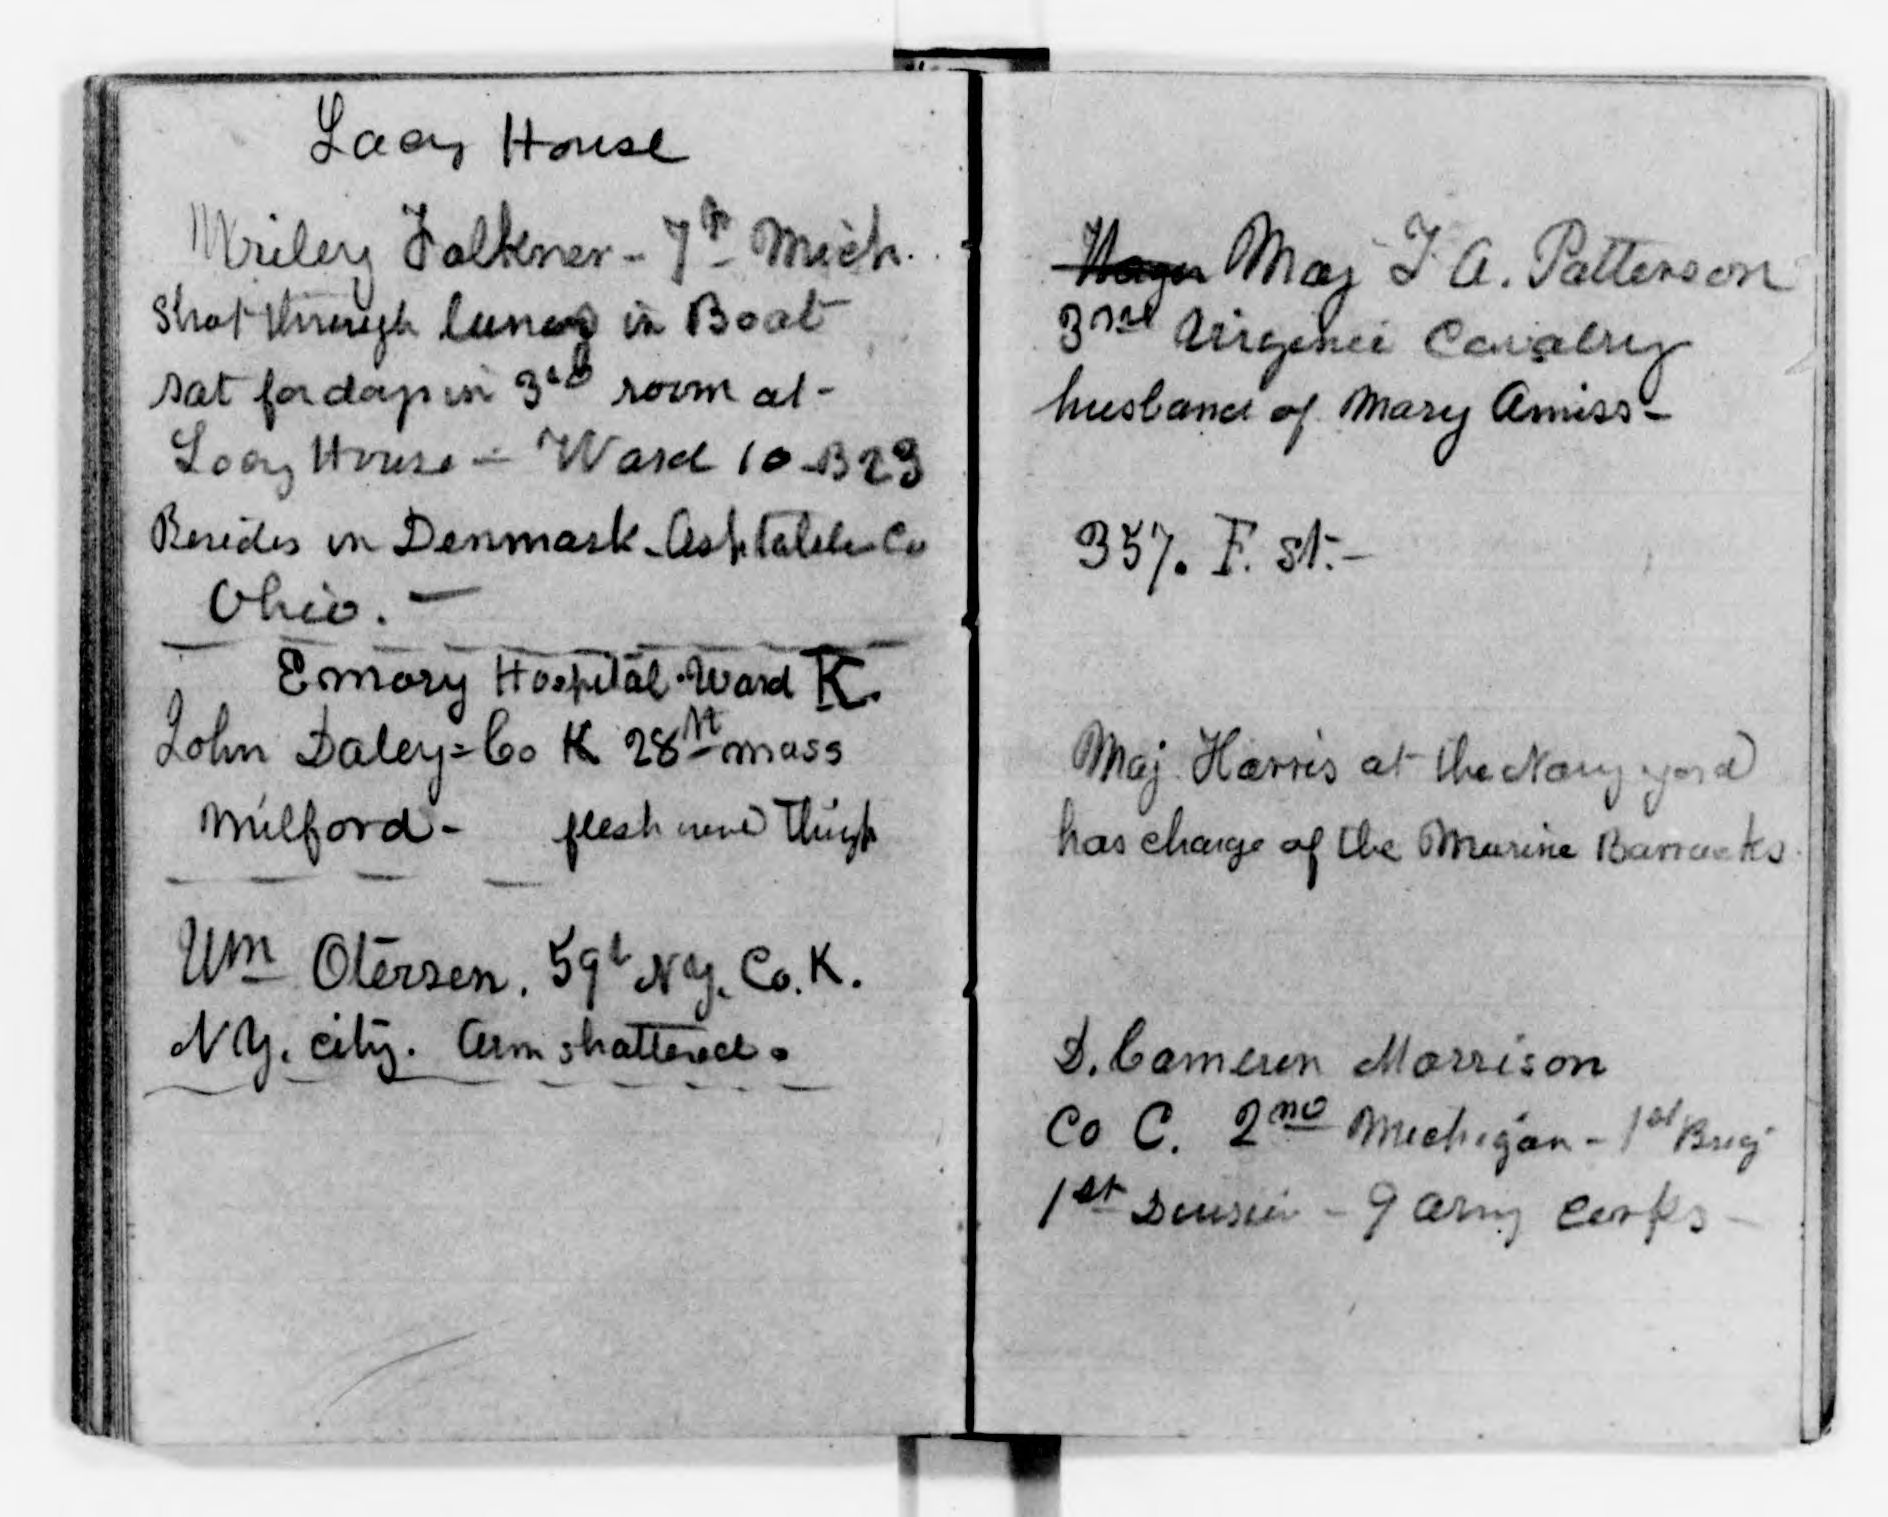 Lacy House
Wriley Falkner - 7th Mich.
Shot through lungs in Boat
sat for days in 3rd room at -
Lacy House - Ward 10 - B 23
Resides in Denmark - Ashtabula Co
Ohio. -
Emory Hospital. Ward K.
John Daley = Co K 28th mass
Milford - flesh wend Thigh
Wm Otersen. 59t NY. Co. K.
NY. city. Arm shattered.
Maj T A. Patterson
3rd Virginia Cavalry
husband of Mary Amiss -
357. F. st. -
Maj. Harris at the Navy yard
has charge of the Marine Barracks.
D. Cameron Morrison
Co C. 2nd Michigan - 1st Brig
1st Division - 9 Army Corps -